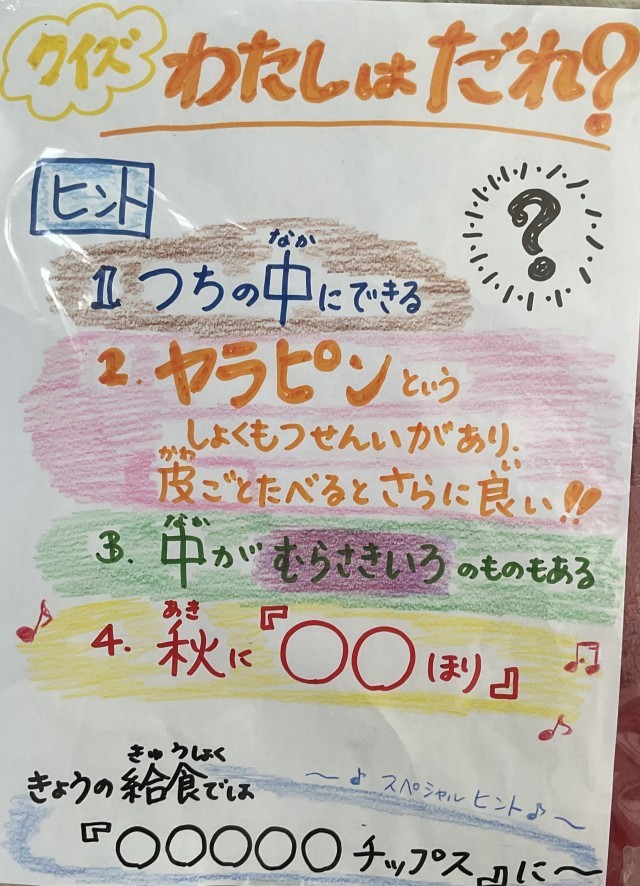 クイズ
わたしはだれ?
ヒント
?
なか
1. つちの中にできる
2. ヤラピンという
しょくもつせんいがあり、
かわ
い
皮ごとたべるとさらに良い!!
なか
3. 中がむらさきいろのものもある
あき
4. 秋に『○○ほり』
きゅうしょく
きょうの給食では
〜♪スペシャルヒント♪〜
『○○○○○チップス』に〜